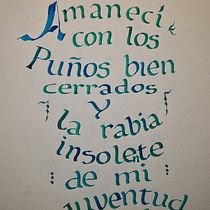 Amanecí
con los
Puños bien
cerrados
Y
la rabia
insolete
de mi
juventud